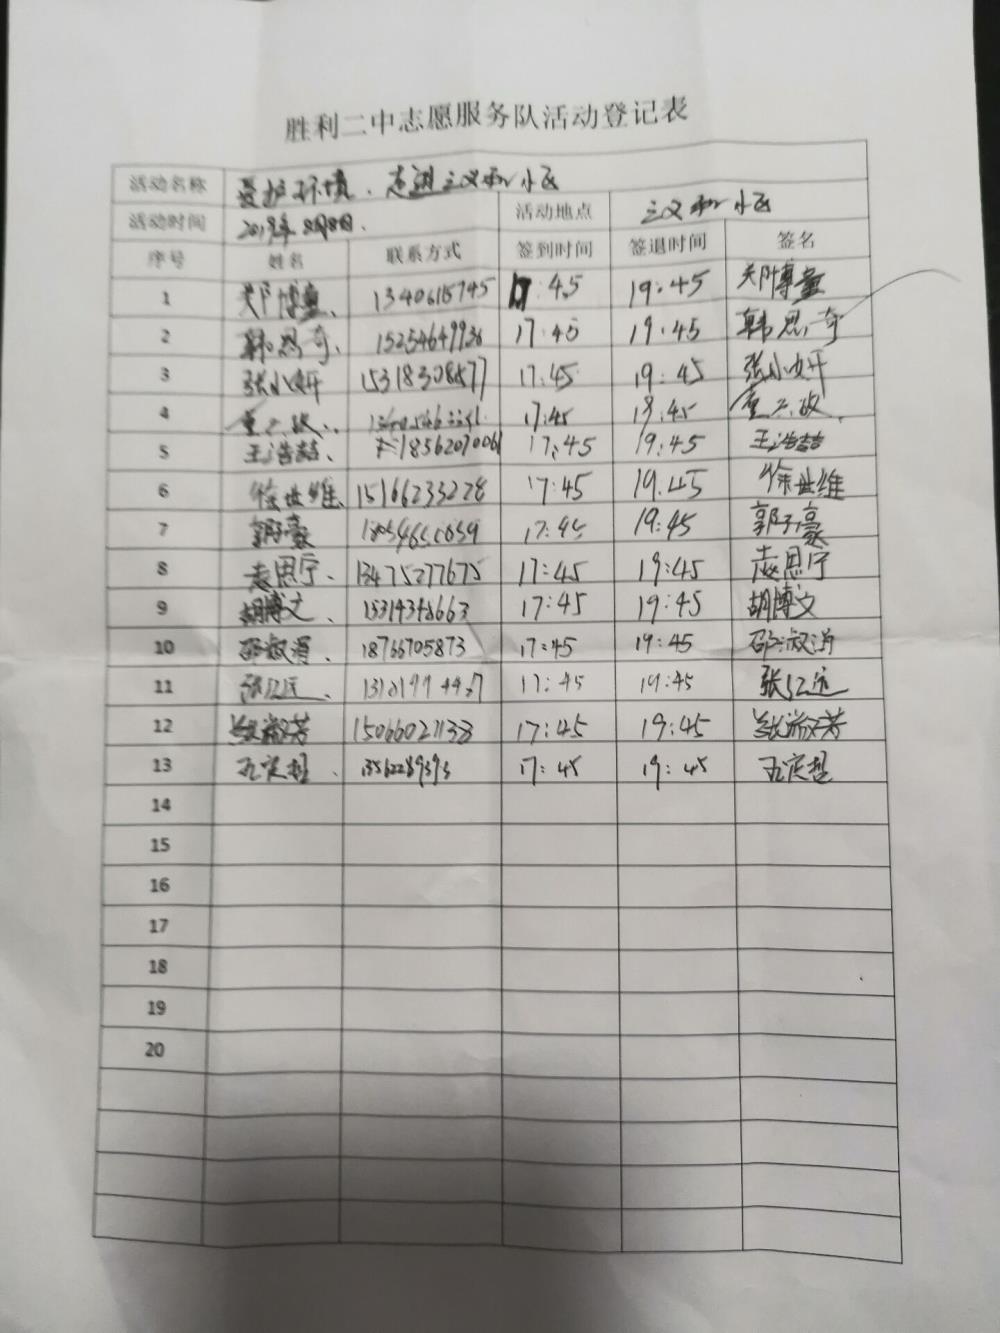 胜利二中志愿服务队活动登记表
活动名称 爱护环境、走进三义和小区
活动时间 2019年8月8日. 活动地点 三义和小区
序号 姓名 联系方式 签到时间 签退时间 签名
1 郑博童、 1340615745 :45 19:45 郑博童
2 韩思奇、 15254649936 17:45 19:45 韩思奇
3 张小妍 15318308577 17:45 19:45 张小妍
4 17:45 19:45
5 王浩喆、 1856207006 17:45 19:45 王浩喆
6 徐世维、 15166233228 17:45 19.45 徐世维
7 郭子豪 17:45 19:45 郭子豪
8 袁思宁、 13475277675 17:45 19:45 袁思宁
9 胡博文、 17:45 19:45 胡博文
10 邵淑涓、 18766705873 17:45 19:45 邵淑涓
11 张亿远、 17:45 19:45 张亿远
12 15066021138 17:45 19:45
13 17:45 19:45
14
15
16
17
18
19
20